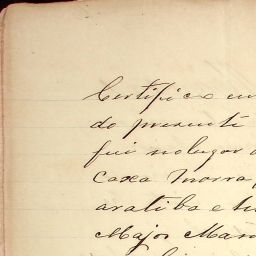 Certifico em
do presente
fui no lugar d
Casca Morra,
aratiba e hi
Major Man